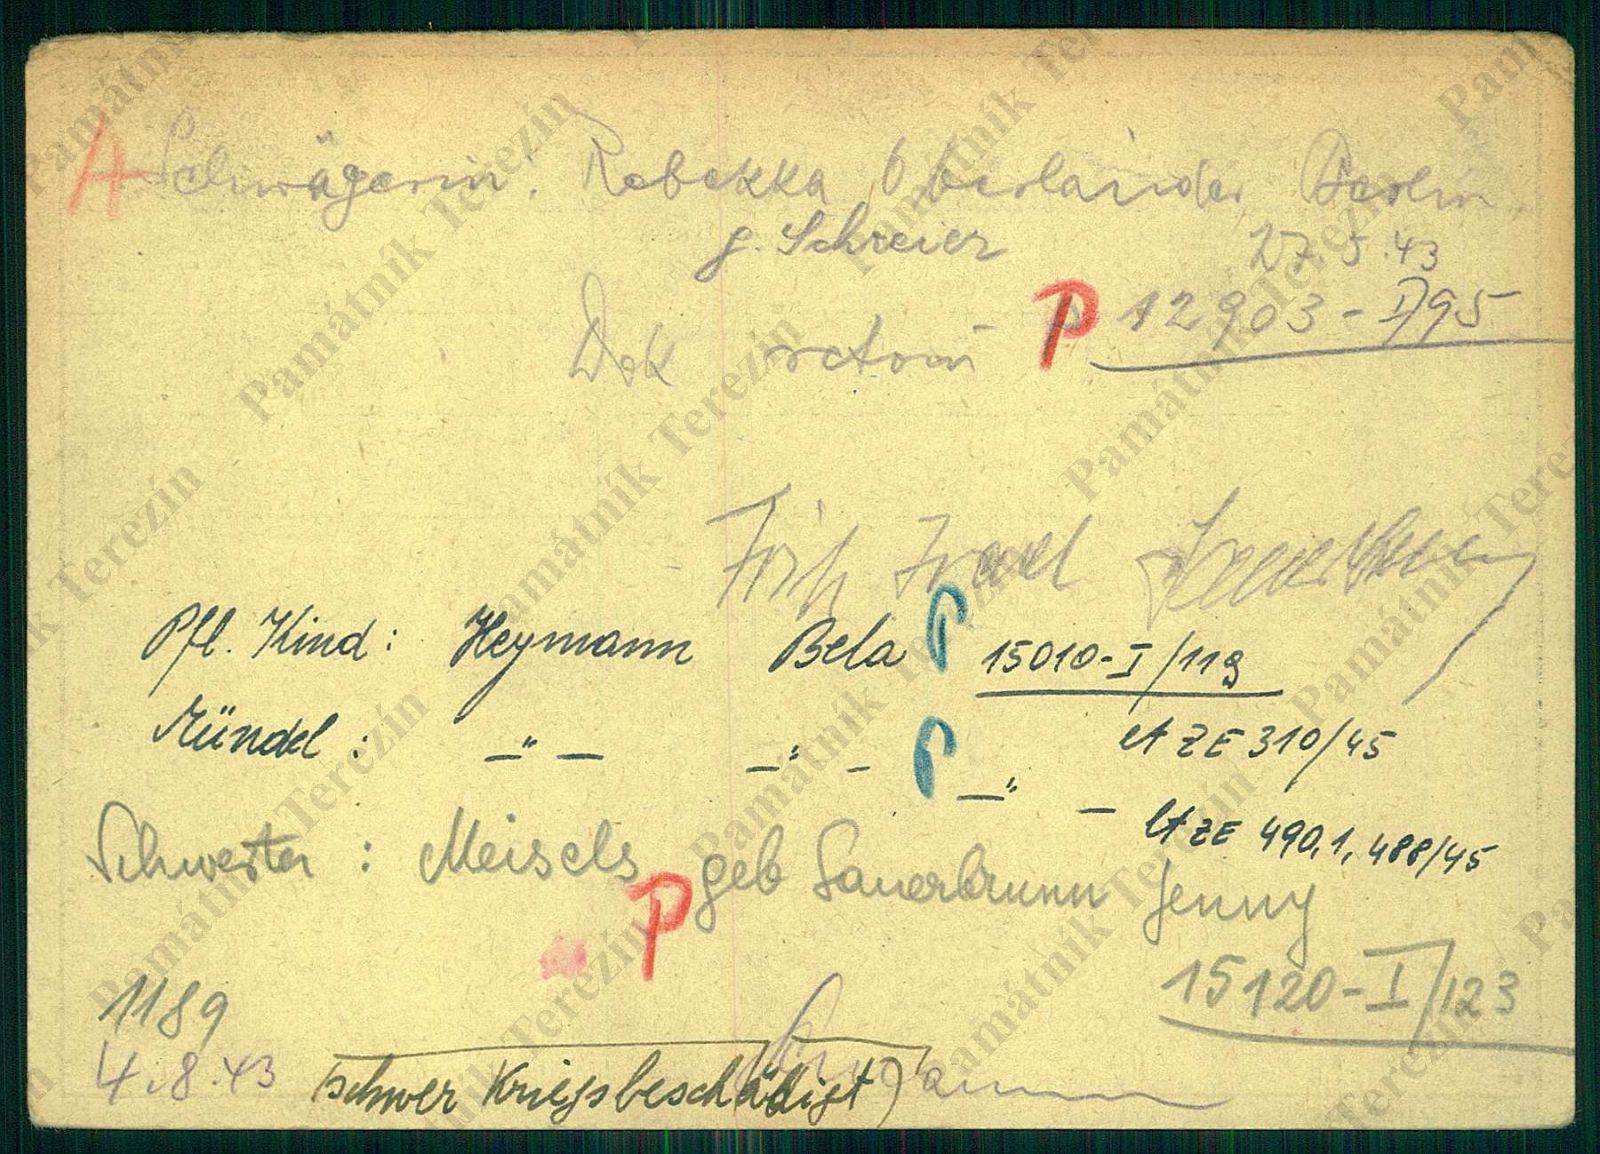 A Schwägerin: Rebekka Oberländer, Berlin,
g. Schreier 27.5.43
P 12903-I/95
Dok
Israel
Pfl. Kind: Heymann Bela P 15010-I/119
Mündel: —"— —"— P —"— A ZE 310/45
A ZE 490,1,488/45
Schwester: Meisels geb Sauerbrunn Jenny
P
15120-I/123
1189
4.8.43 (schwer Kriegsbeschädigt)
Památník Terezín